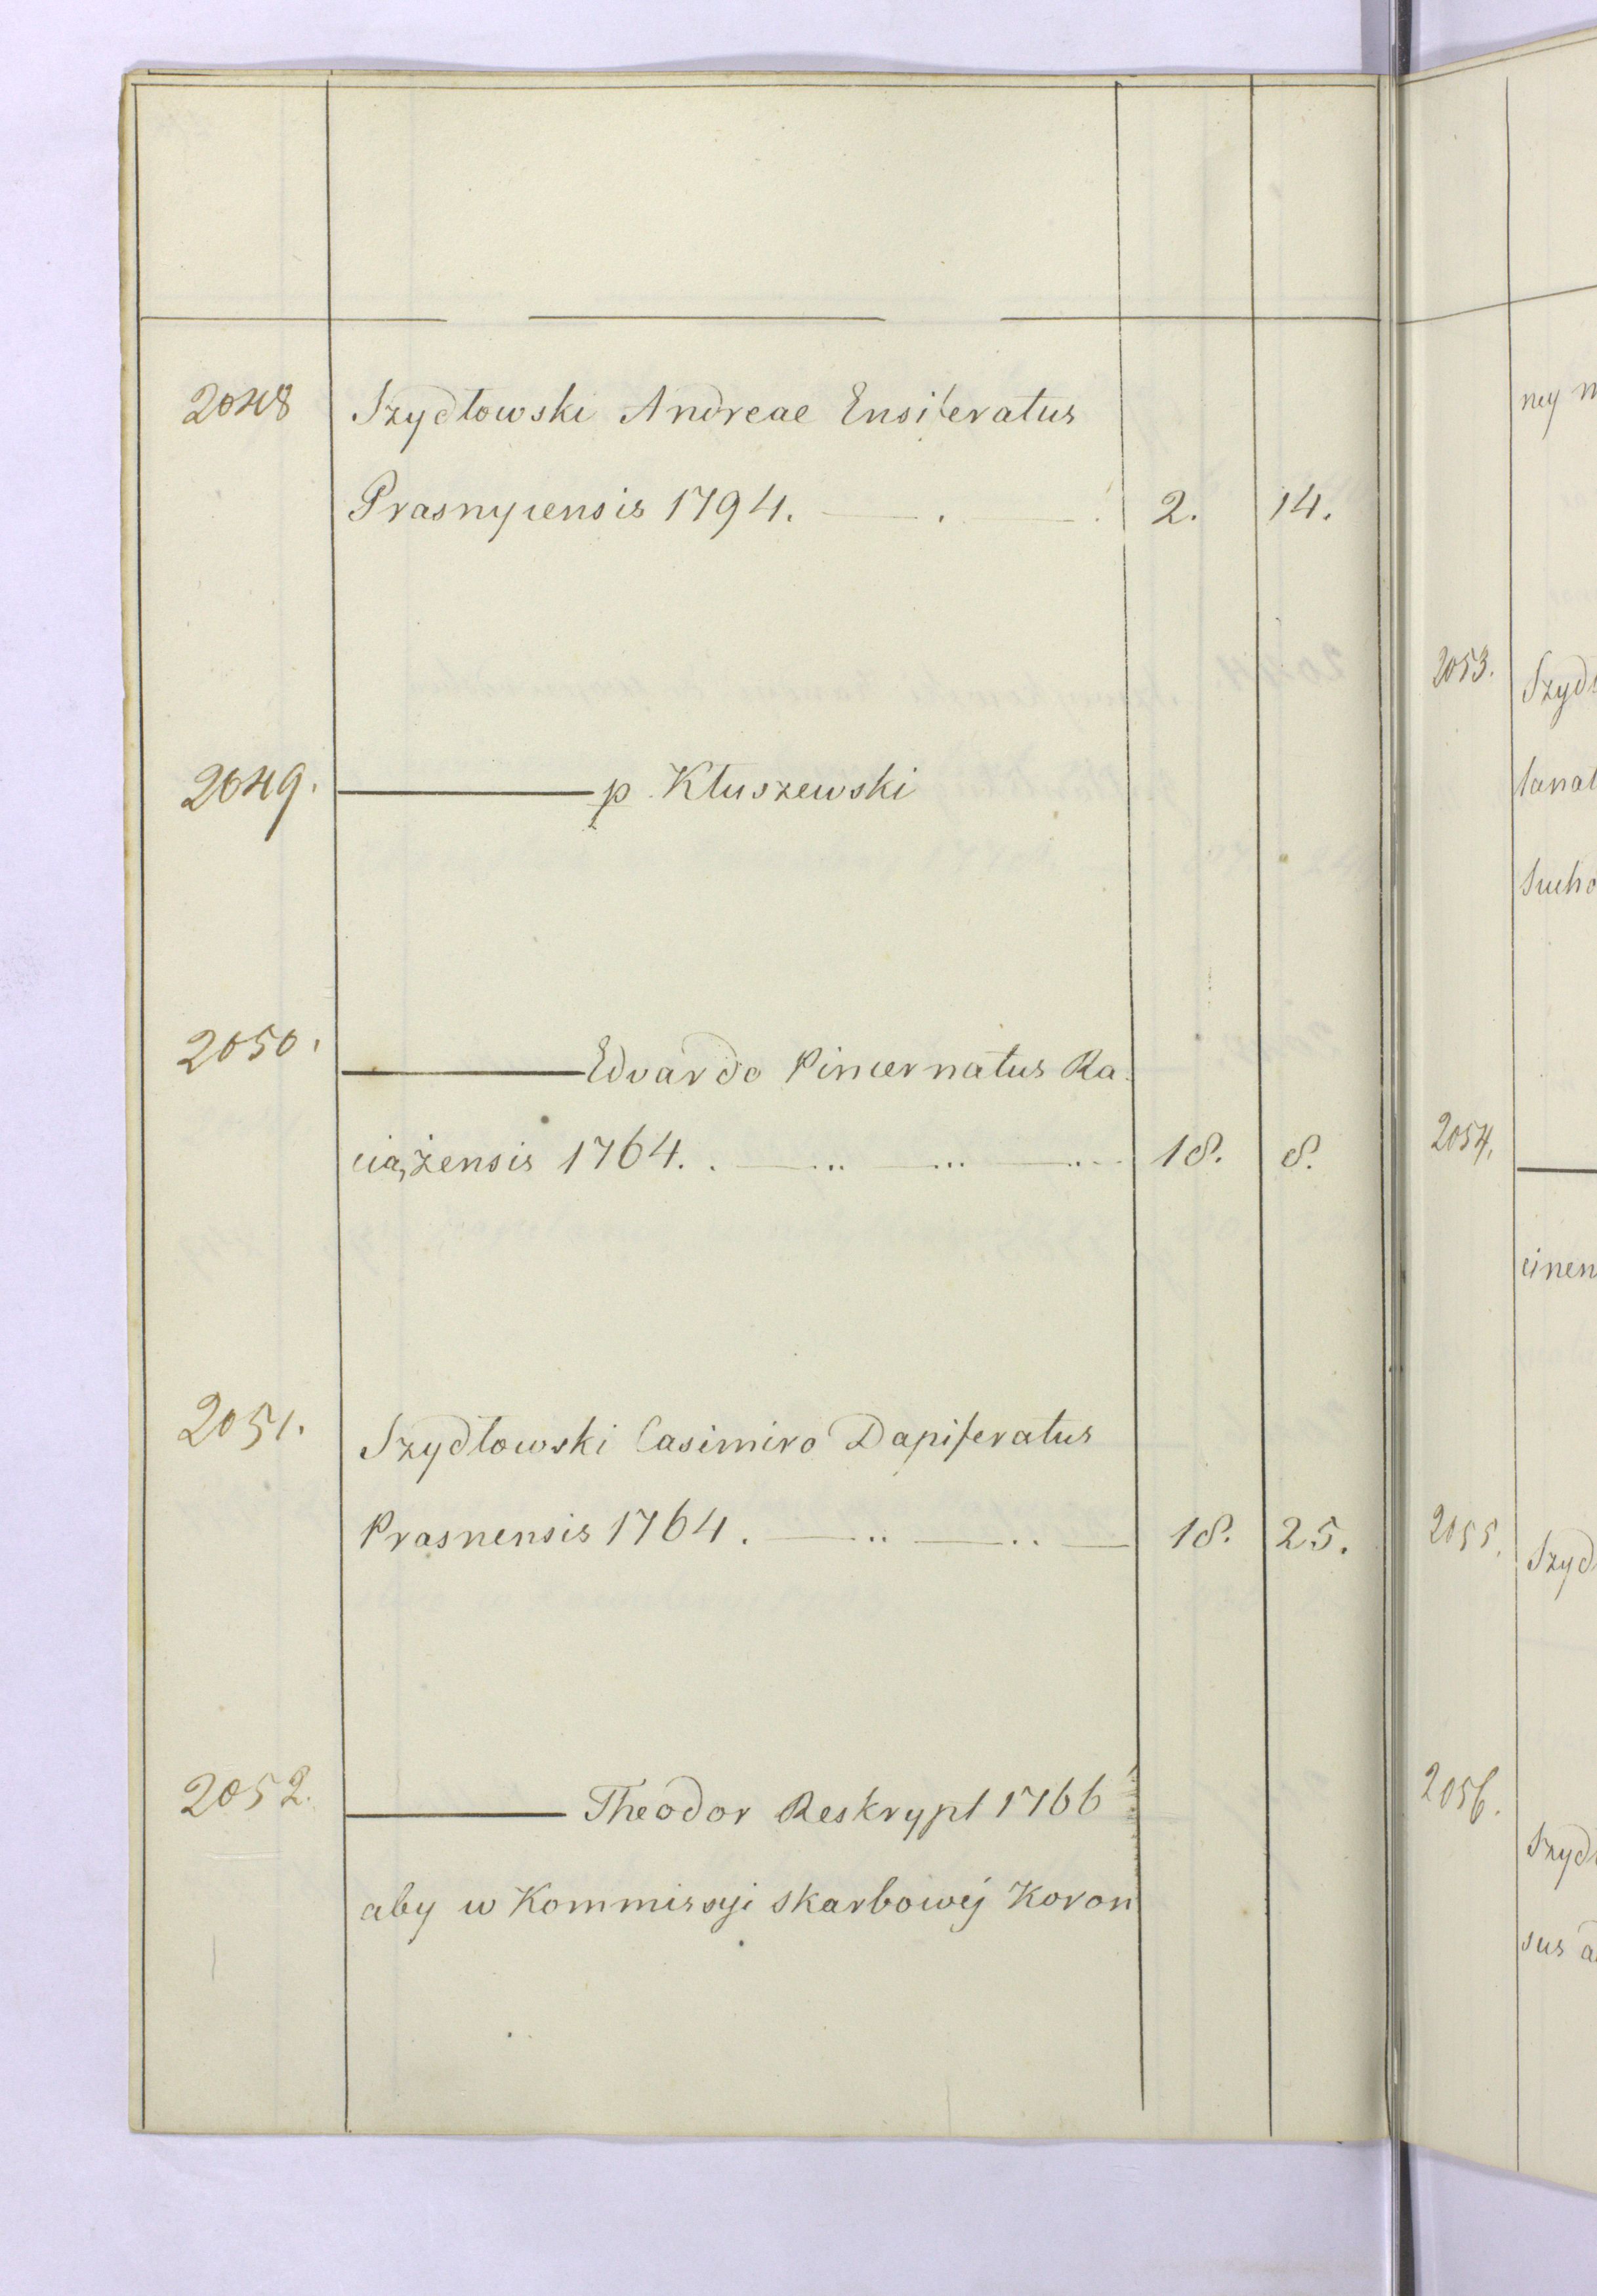 2048 Szydłowski Andreae Ensiferatus
Prasnycensis 1794. 2. 14.
2049. p Kłuszewski
2050. Edvardo Pincernatus Ra
ciążensis 1764. 18. 8.
2051. Szydłowski Casimiro Dapiferatus
Prasnensis 1764. 18. 25.
2052. Theodor Reskrypt 1766
aby w Kommissyi skarbowéj Koron
ney
2053. Szyd
tanat
Sucho
2054.
cinen
2055. Szyd
2056.
Szyd
sus a